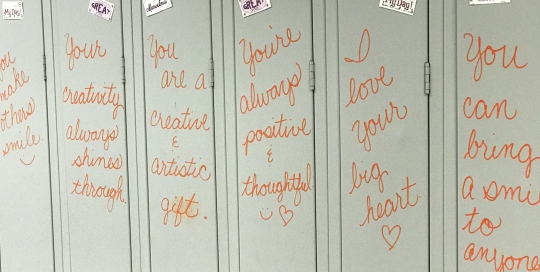 My Day!
GREAT
Marvelous
GREAT
My Day!
you
make
others
smile.
Your
creativity
always
shines
through.
You
are a
creative
&
artistic
gift.
You're
always
positive
&
thoughtful
I
love
your
big
heart.
You
can
bring
a smi
to
anyone